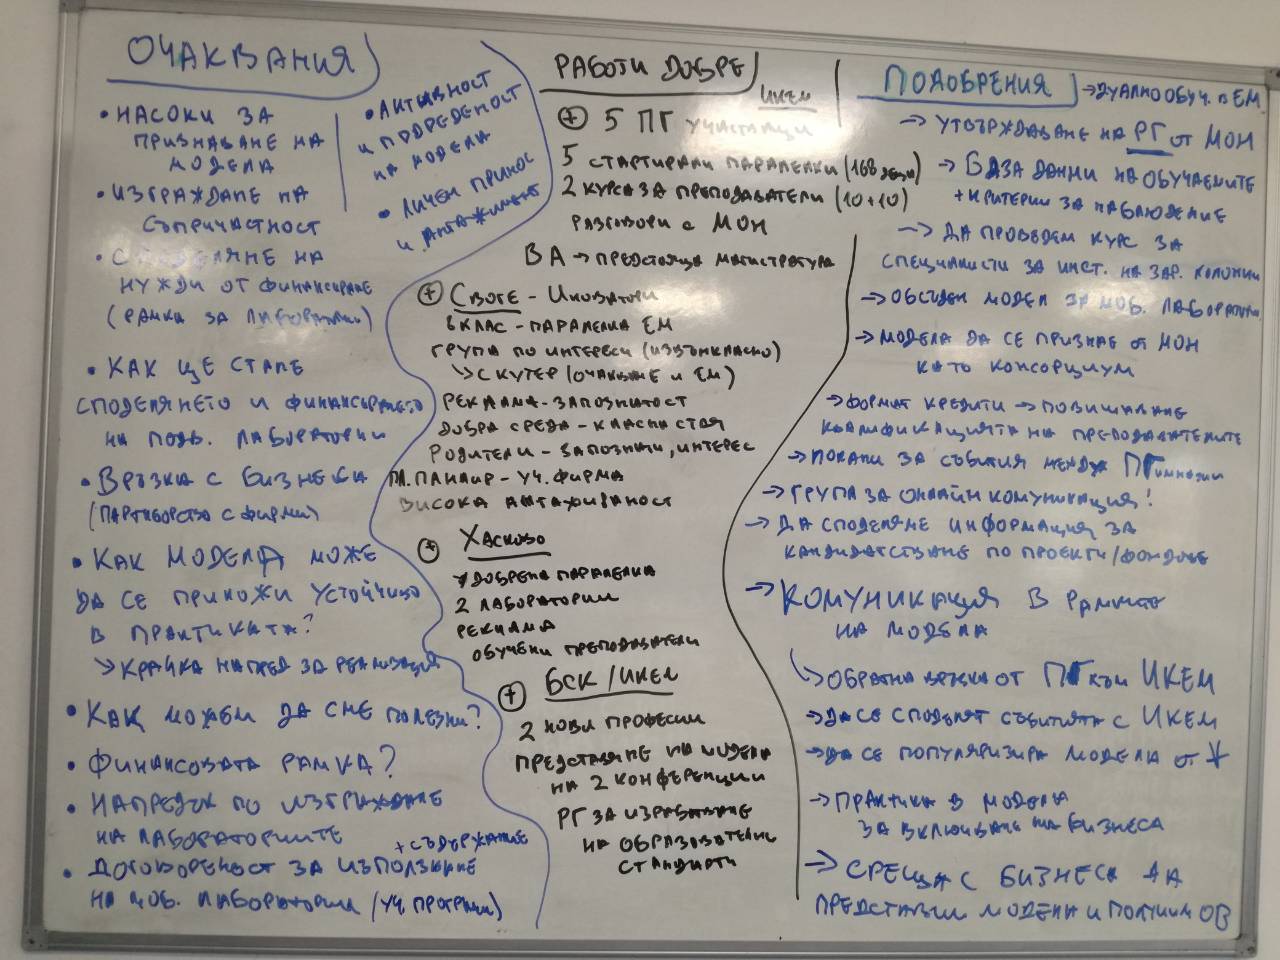 ОЧАКВАНИЯ
• НАСОКИ ЗА
ПРИЗНАВАНЕ НА
МОДЕЛА
• ИЗГРАЖДАНЕ НА
СЪПРИЧАСТНОСТ
• СПОДЕЛЯНЕ НА
НУЖДИ ОТ ФИНАНСИРАНЕ
(РАМКИ ЗА ЛАБОРАТОРИИ)
• КАК ЩЕ СТАНЕ
СПОДЕЛЯНЕТО И ФИНАНСИРАНЕТО
НА ПОДВ. ЛАБОРАТОРИИ
• ВРЪЗКА С БИЗНЕСА
(ПАРТНЬОРСТВО С ФИРМИ)
• КАК МОДЕЛА МОЖЕ
ДА СЕ ПРИЛОЖИ УСТОЙЧИВО
В ПРАКТИКАТА?
↘ КРАЧКА НАПРЕД ЗА РЕАЛИЗАЦИЯ
• КАК МОЖЕМ ДА СМЕ ПОЛЕЗНИ?
• ФИНАНСОВАТА РАМКА?
• НАПРЕДЪК ПО ИЗГРАЖДАНЕ
НА ЛАБОРАТОРИИТЕ
+ СЪДЪРЖАНИЕ
• ДОГОВОРЕНОСТ ЗА ИЗПОЛЗВАНЕ
НА МОБ. ЛАБОРАТОРИЯ (УЧ. ПРОГРАМИ)
• АКТИВНОСТ
И ПОДРЕДЕНОСТ
НА МОДЕЛА
• ЛИЧЕН ПРИНОС
И АНГАЖИМЕНТ
РАБОТИ ДОБРЕ
ИКЕМ
+ 5 ПГ УЧАСТВАЩИ
5 СТАРТИРАЛИ ПАРАЛЕЛКИ (168 ДЕЦА)
2 КУРСА ЗА ПРЕПОДАВАТЕЛИ (10+10)
РАЗГОВОРИ С МОН
ВА → ПРЕДСТОЯЩА МАГИСТРАТУРА
+ СВОГЕ - ИНОВАТОРИ
8 КЛАС - ПАРАЛЕЛКА ЕМ
ГРУПА ПО ИНТЕРЕСИ (ИЗВЪНКЛАСНО)
↘ СКУТЕР (ОЧАКВАНЕ И ЕМ)
РЕКЛАМА - ЗАПОЗНАТОСТ
ДОБРА СРЕДА - КЛАСНА СТАЯ
РОДИТЕЛИ - ЗАПОЗНАТИ, ИНТЕРЕС
ПАНАИР - УЧ. ФИРМА
ВИСОКА АНГАЖИРАНОСТ
+ ХАСКОВО
ОДОБРЕНА ПАРАЛЕЛКА
2 ЛАБОРАТОРИИ
РЕКЛАМА
ОБУЧЕНИ ПРЕПОДАВАТЕЛИ
+ БСК / ИКЕМ
2 НОВИ ПРОФЕСИИ
ПРЕДСТАВЯНЕ НА МОДЕЛА
НА 2 КОНФЕРЕНЦИИ
РГ ЗА ИЗРАБОТВАНЕ
НА ОБРАЗОВАТЕЛНИ
СТАНДАРТИ
ПОДОБРЕНИЯ
→ ДУАЛНО ОБУЧ. В ЕМ
→ УТВЪРЖДАВАНЕ НА РГ ОТ МОН
→ БАЗА ДАННИ НА ОБУЧАЕМИТЕ
+ КРИТЕРИИ ЗА НАБЛЮДЕНИЕ
→ ДА ПРОВЕДЕМ КУРС ЗА
СПЕЦИАЛИСТИ ЗА ИНСТ. НА ЗАР. КОЛОНКИ
→ ОБСЪДЕН МОДЕЛ ЗА МОБ. ЛАБОРАТОРИИ
→ МОДЕЛА ДА СЕ ПРИЗНАЕ ОТ МОН
КАТО КОНСОРЦИУМ
→ ФОРМАТ КРЕДИТИ → ПОВИШАВАНЕ
КВАЛИФИКАЦИЯТА НА ПРЕПОДАВАТЕЛИТЕ
→ ПОКАНИ ЗА СЪБИТИЯ МЕЖДУ ПГИМНАЗИИ
→ ГРУПА ЗА ОНЛАЙН КОМУНИКАЦИЯ!
→ ДА СПОДЕЛЯМЕ ИНФОРМАЦИЯ ЗА
КАНДИДАТСТВАНЕ ПО ПРОЕКТИ/ФОНДОВЕ
→ КОМУНИКАЦИЯ В РАМКИТЕ
НА МОДЕЛА
↘ ОБРАТНА ВРЪЗКА ОТ ПГ КЪМ ИКЕМ
→ ДА СЕ СПОДЕЛЯТ СЪБИТИЯТА С ИКЕМ
→ ДА СЕ ПОПУЛЯРИЗИРА МОДЕЛА ОТ
→ ПРАКТИКА В МОДЕЛА
ЗА ВКЛЮЧВАНЕ НА БИЗНЕСА
→ СРЕЩА С БИЗНЕСА ДА
ПРЕДСТАВИМ МОДЕЛА И ПОЛУЧИМ ОВ